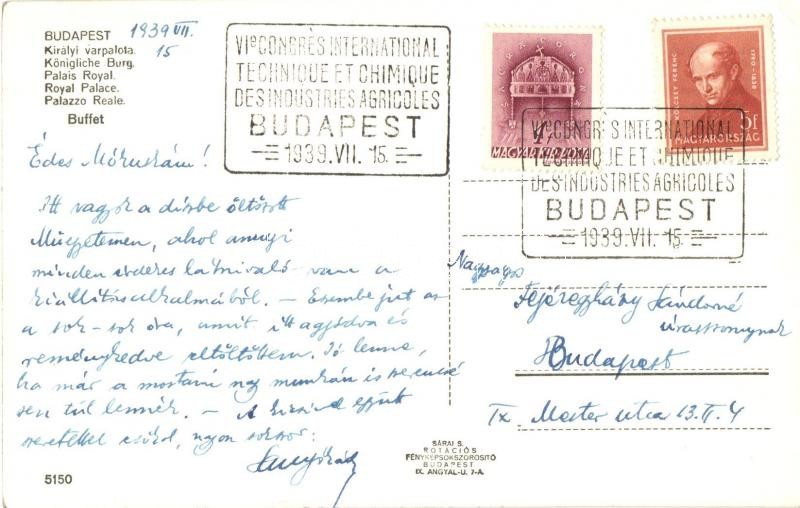 BUDAPEST 1939 VII.
Királyi várpalota. 15
Königliche Burg.
Palais Royal.
Royal Palace.
Palazzo Reale.
Buffet
VIᵉ CONGRÈS INTERNATIONAL
TECHNIQUE ET CHIMIQUE
DES INDUSTRIES AGRICOLES
BUDAPEST
1939.VII. 15.
SACRA CORONA
MAGYAR KIR. POSTA
KÖLCSEY FERENC
5f
MAGYARORSZÁG
VIᵉ CONGRÈS INTERNATIONAL
TECHNIQUE ET CHIMIQUE
DES INDUSTRIES AGRICOLES
BUDAPEST
1939.VII. 15.
Édes
Itt vagyok a díszbe öltözött
Műegyetemen, ahol annyi
minden érdekes látnivaló van a
kiállítás alkalmából. – Eszembe jut az
a sok-sok óra, amit itt aggódva és
reménykedve eltöltöttem. Jó lenne,
ha már a mostani nagy munkán is szerencsé
sen túl lennék. –
szeretettel csókol, nagyon sokszor:
Nagyságos
Sándorné
úrasszonynak
Budapest
IX. Mester utca 13. II. 4
SÁRAI S.
ROTÁCIÓS
FÉNYKÉPSOKSZOROSITÓ
BUDAPEST
IX. ANGYAL-U. 7-A.
5150